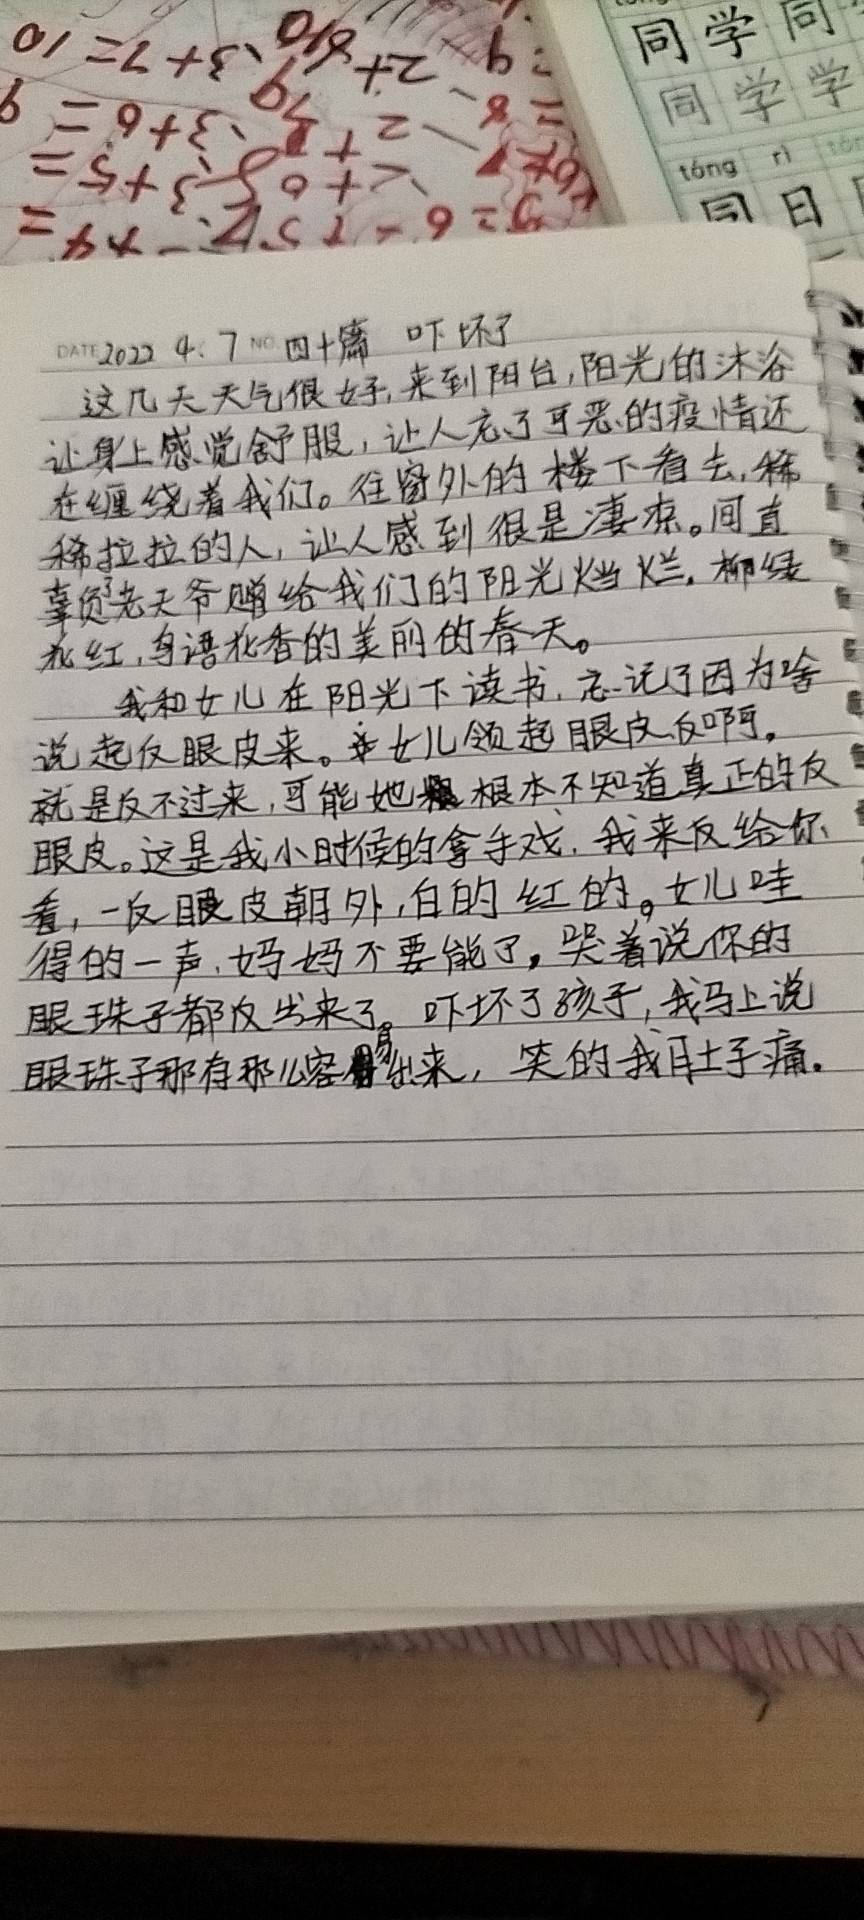 同学同
同学学
tóng rì
同日
DATE 2022 4.7 NO 四十篇 吓坏了
这几天天气很好,来到阳台,阳光的沐浴
让身上感觉舒服,让人忘了可恶的疫情还
在缠绕着我们。往窗外的楼下看去,稀
稀拉拉的人,让人感到很是凄凉。间直
辜负了老天爷赠给我们的阳光灿烂,柳绿
花红,鸟语花香的美丽的春天。
我和女儿在阳光下读书,忘记了因为啥
说起反眼皮来。女儿领起眼皮反啊,
就是反不过来,可能她根本不知道真正的反
眼皮。这是我小时候的拿手戏,我来反给你
看,一反眼皮朝外,白的红的。女儿哇
得的一声,妈妈不要能了,哭着说你的
眼珠子都反出来了。吓坏了孩子,我马上说
眼珠子那有那么容易出来,笑的我肚子痛.